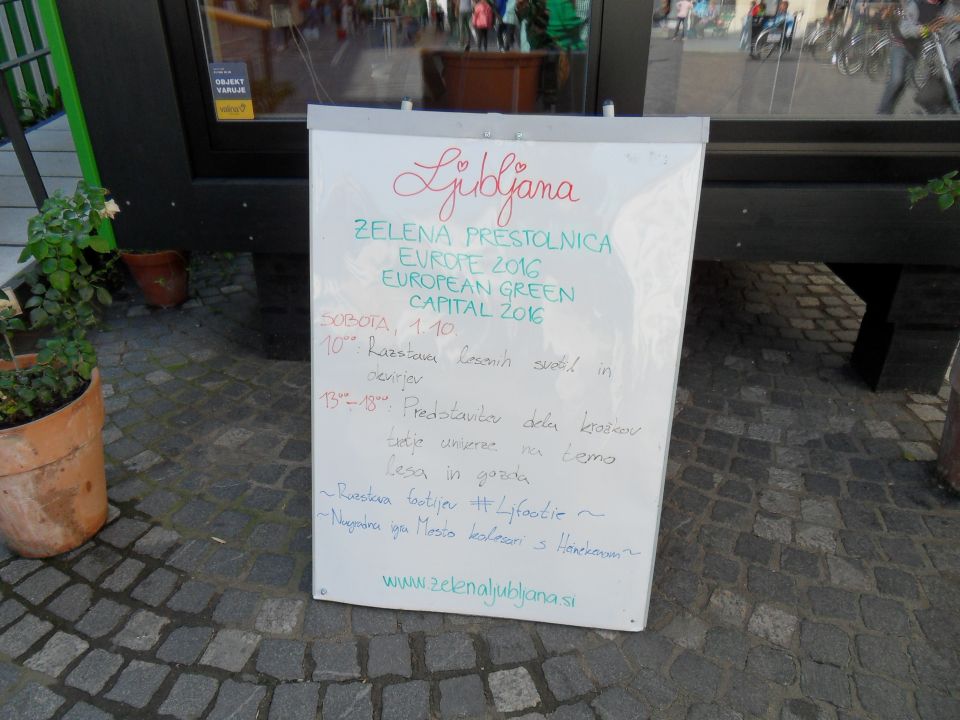 OBJEKT
VARUJE
valina
Ljubljana
ZELENA PRESTOLNICA
EUROPE 2016
EUROPEAN GREEN
CAPITAL 2016
SOBOTA, 1.10.
10⁰⁰: Razstava lesenih svetil in
okvirjev
13⁰⁰-18⁰⁰: Predstavitev dela krožkov
tretje univerze na temo
lesa in gozda
~Razstava footijev #Ljfootie~
~Nagradna igra Mesto kolesari s Heinekenom~
www.zelenaljubljana.si